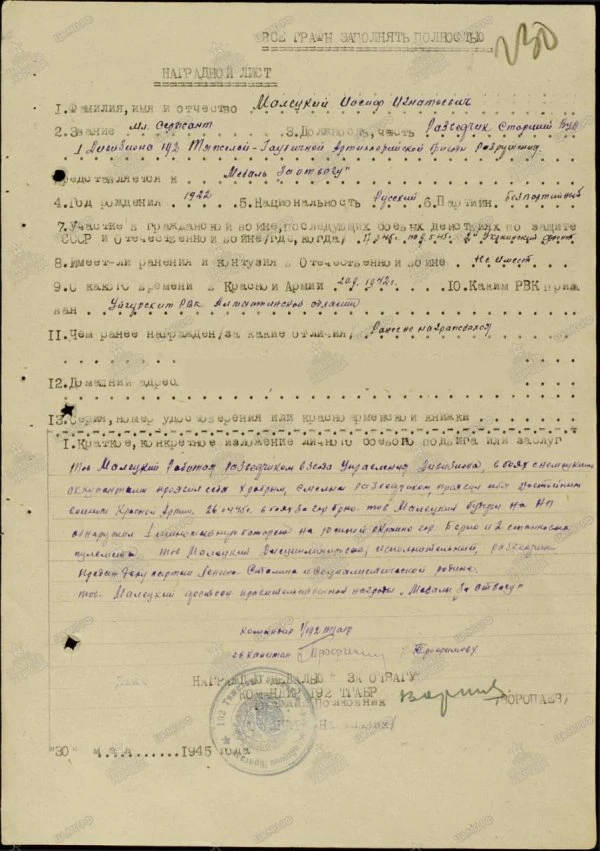 ВСЕ ГРАФЫ ЗАПОЛНЯТЬ ПОЛНОСТЬЮ
НАГРАДНОЙ ЛИСТ
1. Фамилия, имя и отчество Малецкий Иосиф Игнатьевич
2. Звание Мл. Сержант 3. Должность, часть Разведчик Старший ВУД
1 Дивизиона 192 Тяжелой-Гаубичной Артиллерийской бригады разрушения.
представляется к Медаль "За отвагу"
4. Год рождения 1922 5. Национальность Русский 6. Партийн. беспартийный
7. Участие в гражданской войне, последующих боевых действиях по защите
СССР и Отечественной войне/где, когда/ Украинский фронт
8. Имеет-ли ранения и контузия в Отечественной войне Не имеет
9. С какого времени в Красной Армии 1942г. 10. Каким РВК приз
ван Уйгурским РВК Алматинской области
11. Чем ранее награжден/за какие отличия/ Ранее не награждался
12. Домашний адрес
13. Серия, номер удостоверения или красноармейской книжки
1. Краткое, конкретное изложение личного боевого подвига или заслуг
тов Малецкий Работая разведчиком взвода Управления Дивизиона, в боях с немецкими
оккупантами проявил себя храбрым, смелым разведчиком, проявил себя достойным
воином Красной Армии. в боях за гор Брно. тов Малецкий будучи на НП
обнаружил 1 минометную батарею на южной окраине гор. Берно и 2 станковых
пулемета. тов Малецкий дисциплинирован, исполнительный, разведчик
предан делу партии Ленина Сталина и социалистической родине.
тов. Малецкий достоин правительственной награды "Медаль За отвагу"
Командир 1/192 тгабр
гв капитан Трофимову
НАГРАЖДЕН МЕДАЛЬЮ " ЗА ОТВАГУ"
КОМАНДИР 192 ТГАБР
Гвардии Полковник /ВОРОПАЕВ/
"30" мая 1945 года